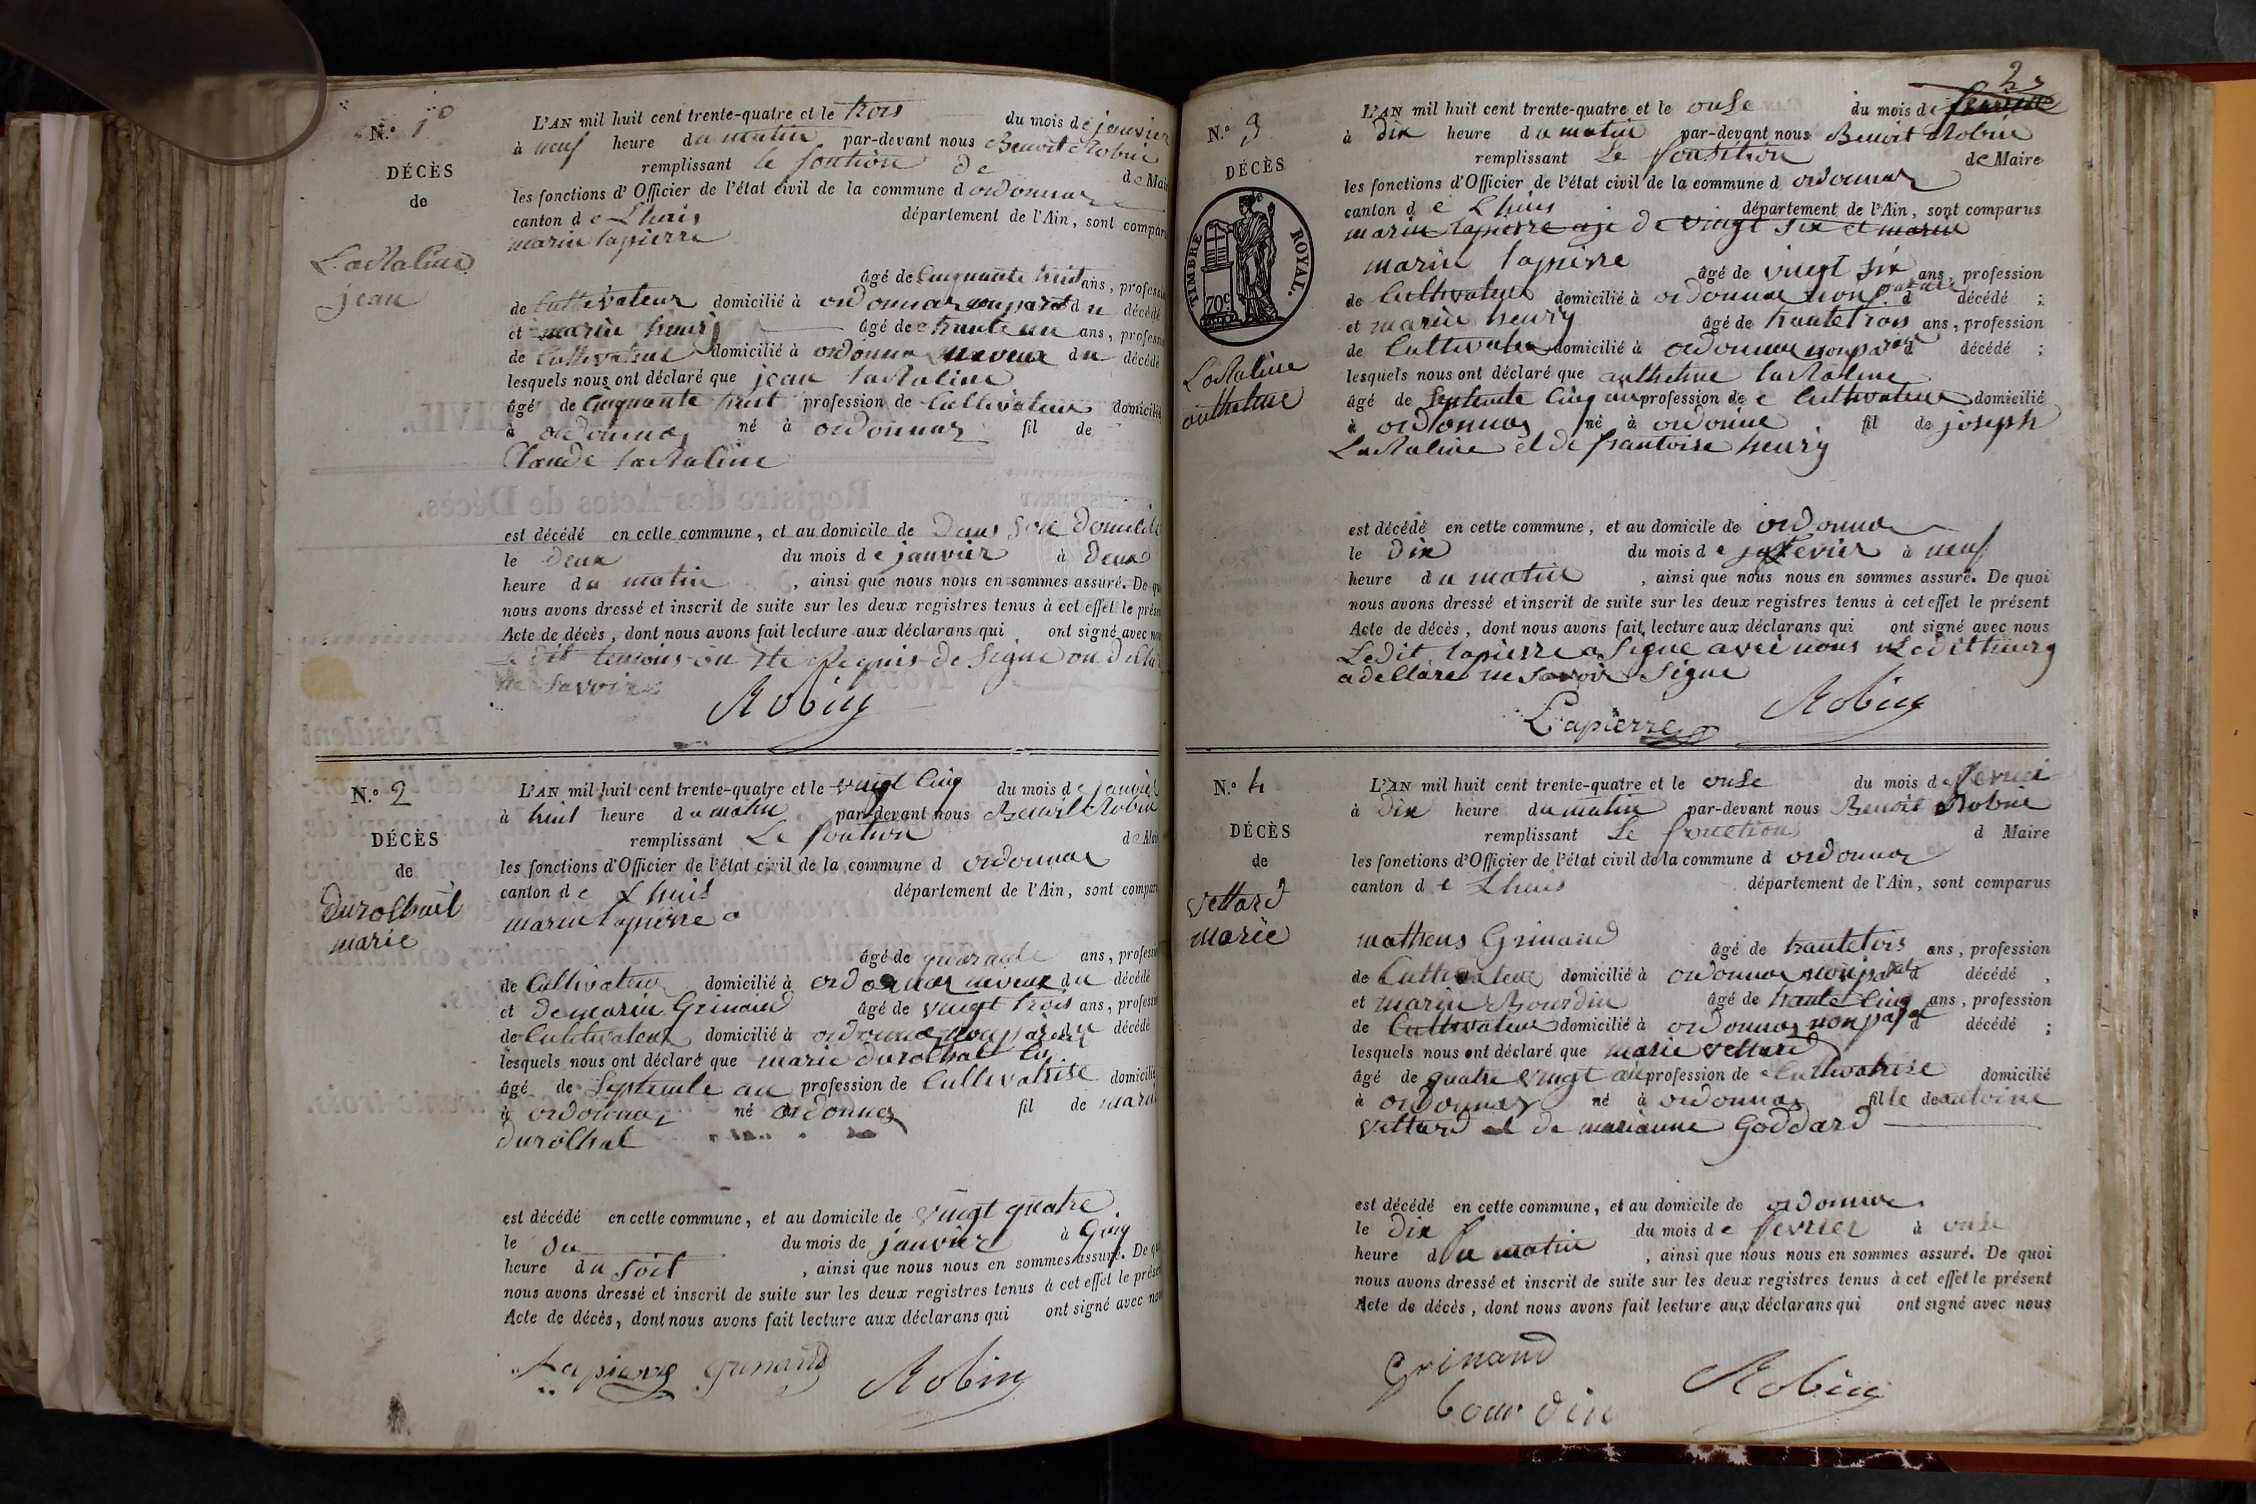 N.º 1º
DÉCÈS
de
LaRaline
jean
L'AN mil huit cent trente-quatre et le trois du mois de janvier
à neuf heure du matin par-devant nous Benoit Robin
remplissant le fontion de de Mai
les fonctions d'Officier de l'état civil de la commune d ordonnaz
canton de Lhuis département de l'Ain, sont compar
marin lapierre
âgé de Cinquante huit ans, professi
de Cultivateur domicilié à ordonnaz non parend du décédé
et marin henry âgé de trante un ans, professi
de Cultivateur domicilié à ordonnaz neveux du décédé
lesquels nous ont déclaré que jean laRaline
âgé de Cinquante huit profession de Cultivateur domicilié
à ordonnaz né à ordonnaz fil de
Claude laRaline
est décédé en cette commune, et au domicile de Dans son domicile
le deux du mois de janvier à deux
heure du matin, ainsi que nous nous en sommes assuré. De qu
nous avons dressé et inscrit de suite sur les deux registres tenus à cet effet le prése
Acte de décès, dont nous avons fait lecture aux déclarans qui ont signé avec nou
temoins on Ete Requis de Signe on
ne Savoir
Robin
N.º 2
DÉCÈS
de
Durochat
marie
L'AN mil huit cent trente-quatre et le vingt Cinq du mois de janvier
à huit heure du matin par-devant nous Benoit Robin
remplissant Le fontion de Mai
les fonctions d'Officier de l'état civil de la commune d ordonnaz
canton de Lhuis département de l'Ain, sont compar
marin lapierre
âgé de quarante ans, professi
de Cultivateur domicilié à ordonnaz neveux du décédé
et de marin Grinand âgé de vingt trois ans, professi
de Cultivateur domicilié à ordonnaz non parend du décédé
lesquels nous ont déclaré que marie durochat
âgé de Septente an profession de Cultivatrise domicilié
à ordonnaz né à ordonnaz fil de marin
durochat
est décédé en cette commune, et au domicile de vingt quatre
le du du mois de janvier à Cinq
heure du soit, ainsi que nous nous en sommes assuré. De qu
nous avons dressé et inscrit de suite sur les deux registres tenus à cet effet le prése
Acte de décès, dont nous avons fait lecture aux déclarans qui ont signé avec nou
Lapierre Grinand Robin
2
N.º 3
DÉCÈS
TIMBRE ROYAL.
70c
LaRaline
anthelme
L'AN mil huit cent trente-quatre et le onse du mois de fevrier
à dix heure du matin par-devant nous Benoit Robin
remplissant Le fonstion de Maire
les fonctions d'Officier de l'état civil de la commune d ordonnaz
canton de Lhuis département de l'Ain, sont comparus
marin lapierre aje de vingt six et marin
marin lapierre âgé de vingt six ans, profession
de Cultivateur domicilié à ordonnaz non parend d décédé ;
et marin henry âgé de trantetrois ans, profession
de Cultivateur domicilié à ordonnaz non parend d décédé ;
lesquels nous ont déclaré que anthelme laRaline
âgé de Septente Cinq an profession de Cultivateur domicilié
à ordonnaz né à ordonne fil de joseph
LaRaline et de frantoise henry
est décédé en cette commune, et au domicile de ordonnaz
le dix du mois de fevrier à neuf
heure du matin, ainsi que nous nous en sommes assuré. De quoi
nous avons dressé et inscrit de suite sur les deux registres tenus à cet effet le présent
Acte de décès, dont nous avons fait lecture aux déclarans qui ont signé avec nous
Ledit lapierre a Signe avec nous Ledit henry
a dellare ne savoir Signe
Lapierre Robin
N.º 4
DÉCÈS
de
Vettard
Marie
L'AN mil huit cent trente-quatre et le onse du mois de fevrier
à dix heure du matin par-devant nous Benoit Robin
remplissant Le fonction d Maire
les fonctions d'Officier de l'état civil de la commune d ordonnaz
canton de Lhuis département de l'Ain, sont comparus
matheus Grinand âgé de trantetrois ans, profession
de Cultivateur domicilié à ordonnaz non parend d décédé,
et marin Bourdin âgé de trante Cinq ans, profession
de Cultivateur domicilié à ordonnaz non parend d décédé ;
lesquels nous ont déclaré que marie Vettard
âgé de quatre vingt an profession de Cultivatrise domicilié
à ordonnaz né à ordonnaz fille de antoine
Vettard et de marianne Goddard
est décédé en cette commune, et au domicile de ordonnaz
le dix du mois de fevrier à onse
heure du matin, ainsi que nous nous en sommes assuré. De quoi
nous avons dressé et inscrit de suite sur les deux registres tenus à cet effet le présent
Acte de décès, dont nous avons fait lecture aux déclarans qui ont signé avec nous
Grinand
bourdin Robin